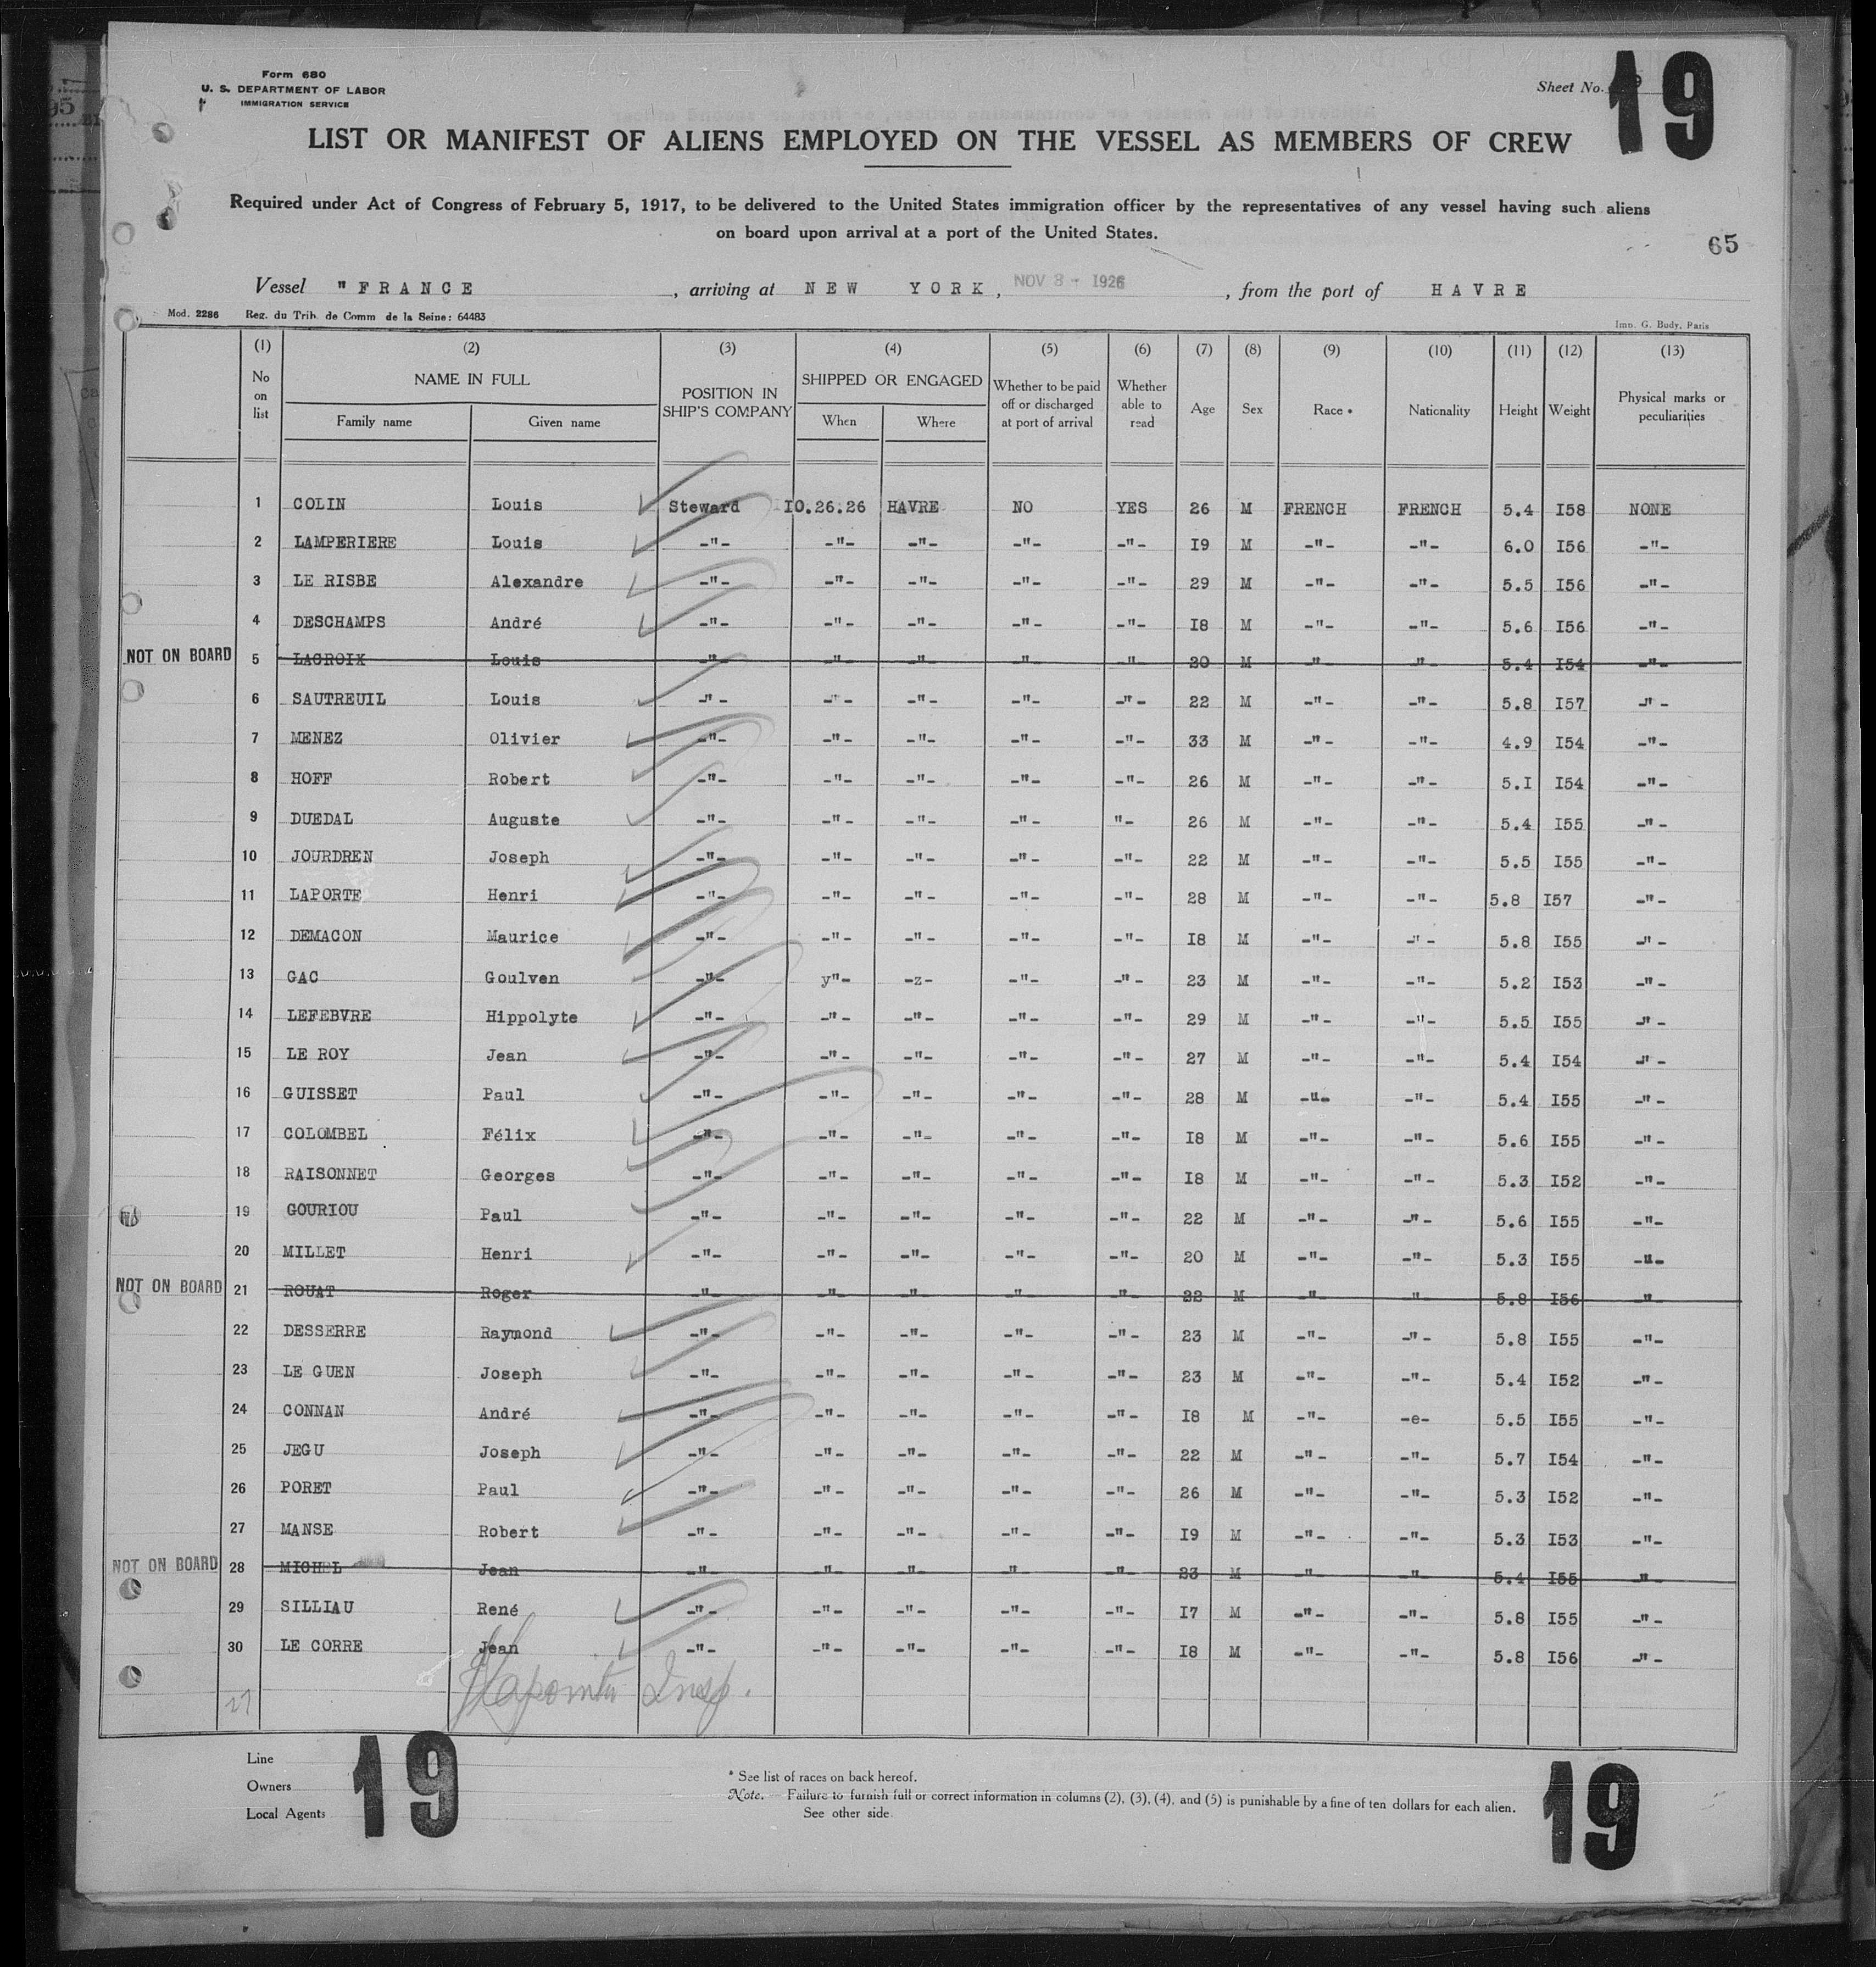 Form 680
U. S. DEPARTMENT OF LABOR
IMMIGRATION SERVICE
Sheet No.
19
LIST OR MANIFEST OF ALIENS EMPLOYED ON THE VESSEL AS MEMBERS OF CREW
Required under Act of Congress of February 5, 1917, to be delivered to the United States immigration officer by the representatives of any vessel having such aliens
on board upon arrival at a port of the United States.
65
Vessel "FRANCE , arriving at NEW YORK, NOV 8 - 1926 , from the port of HAVRE
Mod. 2286 Reg. du Trib. de Comm de la Seine: 64483 Imp. G. Body, Paris
(1) (2) (3) (4) (5) (6) (7) (8) (9) (10) (11) (12) (13)
No on list NAME IN FULL Family name Given name POSITION IN SHIP'S COMPANY SHIPPED OR ENGAGED When Where Whether to be paid off or discharged at port of arrival Whether able to read Age Sex Race * Nationality Height Weight Physical marks or peculiarities
1 COLIN Louis Steward 10.26.26 HAVRE NO YES 26 M FRENCH FRENCH 5.4 I58 NONE
2 LAMPERIERE Louis -"- -"- -"- -"- -"- I9 M -"- -"- 6.0 I56 -"-
3 LE RISBE Alexandre -"- -"- -"- -"- -"- 29 M -"- -"- 5.5 I56 -"-
4 DESCHAMPS André -"- -"- -"- -"- -"- I8 M -"- -"- 5.6 I56 -"-
NOT ON BOARD 5 LACROIX Louis -"- -"- -"- -"- -"- 20 M -"- -"- 5.4 I54 -"-
6 SAUTREUIL Louis -"- -"- -"- -"- -"- 22 M -"- -"- 5.8 I57 -"-
7 MENEZ Olivier -"- -"- -"- -"- -"- 33 M -"- -"- 4.9 I54 -"-
8 HOFF Robert -"- -"- -"- -"- -"- 26 M -"- -"- 5.I I54 -"-
9 DUEDAL Auguste -"- -"- -"- -"- "- 26 M -"- -"- 5.4 I55 -"-
10 JOURDREN Joseph -"- -"- -"- -"- -"- 22 M -"- -"- 5.5 I55 -"-
11 LAPORTE Henri -"- -"- -"- -"- -"- 28 M -"- -"- 5.8 I57 -"-
12 DEMACON Maurice -"- -"- -"- -"- -"- I8 M -"- -"- 5.8 I55 -"-
13 GAC Goulven -"- y"- -z- -"- -"- 23 M -"- -"- 5.2 I53 -"-
14 LEFEBVRE Hippolyte -"- -"- -"- -"- -"- 29 M -"- -"- 5.5 I55 -"-
15 LE ROY Jean -"- -"- -"- -"- -"- 27 M -"- -"- 5.4 I54 -"-
16 GUISSET Paul -"- -"- -"- -"- -"- 28 M -"- -"- 5.4 I55 -"-
17 COLOMBEL Félix -"- -"- -"- -"- -"- I8 M -"- -"- 5.6 I55 -"-
18 RAISONNET Georges -"- -"- -"- -"- -"- I8 M -"- -"- 5.3 I52 -"-
19 GOURIOU Paul -"- -"- -"- -"- -"- 22 M -"- -"- 5.6 I55 -"-
20 MILLET Henri -"- -"- -"- -"- -"- 20 M -"- -"- 5.3 I55 -"-
NOT ON BOARD 21 ROUAT Roger -"- -"- -"- -"- -"- 22 M -"- -"- 5.8 I56 -"-
22 DESSERRE Raymond -"- -"- -"- -"- -"- 23 M -"- -"- 5.8 I55 -"-
23 LE GUEN Joseph -"- -"- -"- -"- -"- 23 M -"- -"- 5.4 I52 -"-
24 CONNAN André -"- -"- -"- -"- -"- I8 M -"- -e- 5.5 I55 -"-
25 JEGU Joseph -"- -"- -"- -"- -"- 22 M -"- -"- 5.7 I54 -"-
26 PORET Paul -"- -"- -"- -"- -"- 26 M -"- -"- 5.3 I52 -"-
27 MANSE Robert -"- -"- -"- -"- -"- I9 M -"- -"- 5.3 I53 -"-
NOT ON BOARD 28 MICHEL Jean -"- -"- -"- -"- -"- 23 M -"- -"- 5.4 I55 -"-
29 SILLIAU René -"- -"- -"- -"- -"- I7 M -"- -"- 5.8 I55 -"-
30 LE CORRE Jean -"- -"- -"- -"- -"- I8 M -"- -"- 5.8 I56 -"-
27 Insp.
Line
Owners
Local Agents
19
* See list of races on back hereof.
Note. — Failure to furnish full or correct information in columns (2), (3), (4), and (5) is punishable by a fine of ten dollars for each alien.
See other side.
19